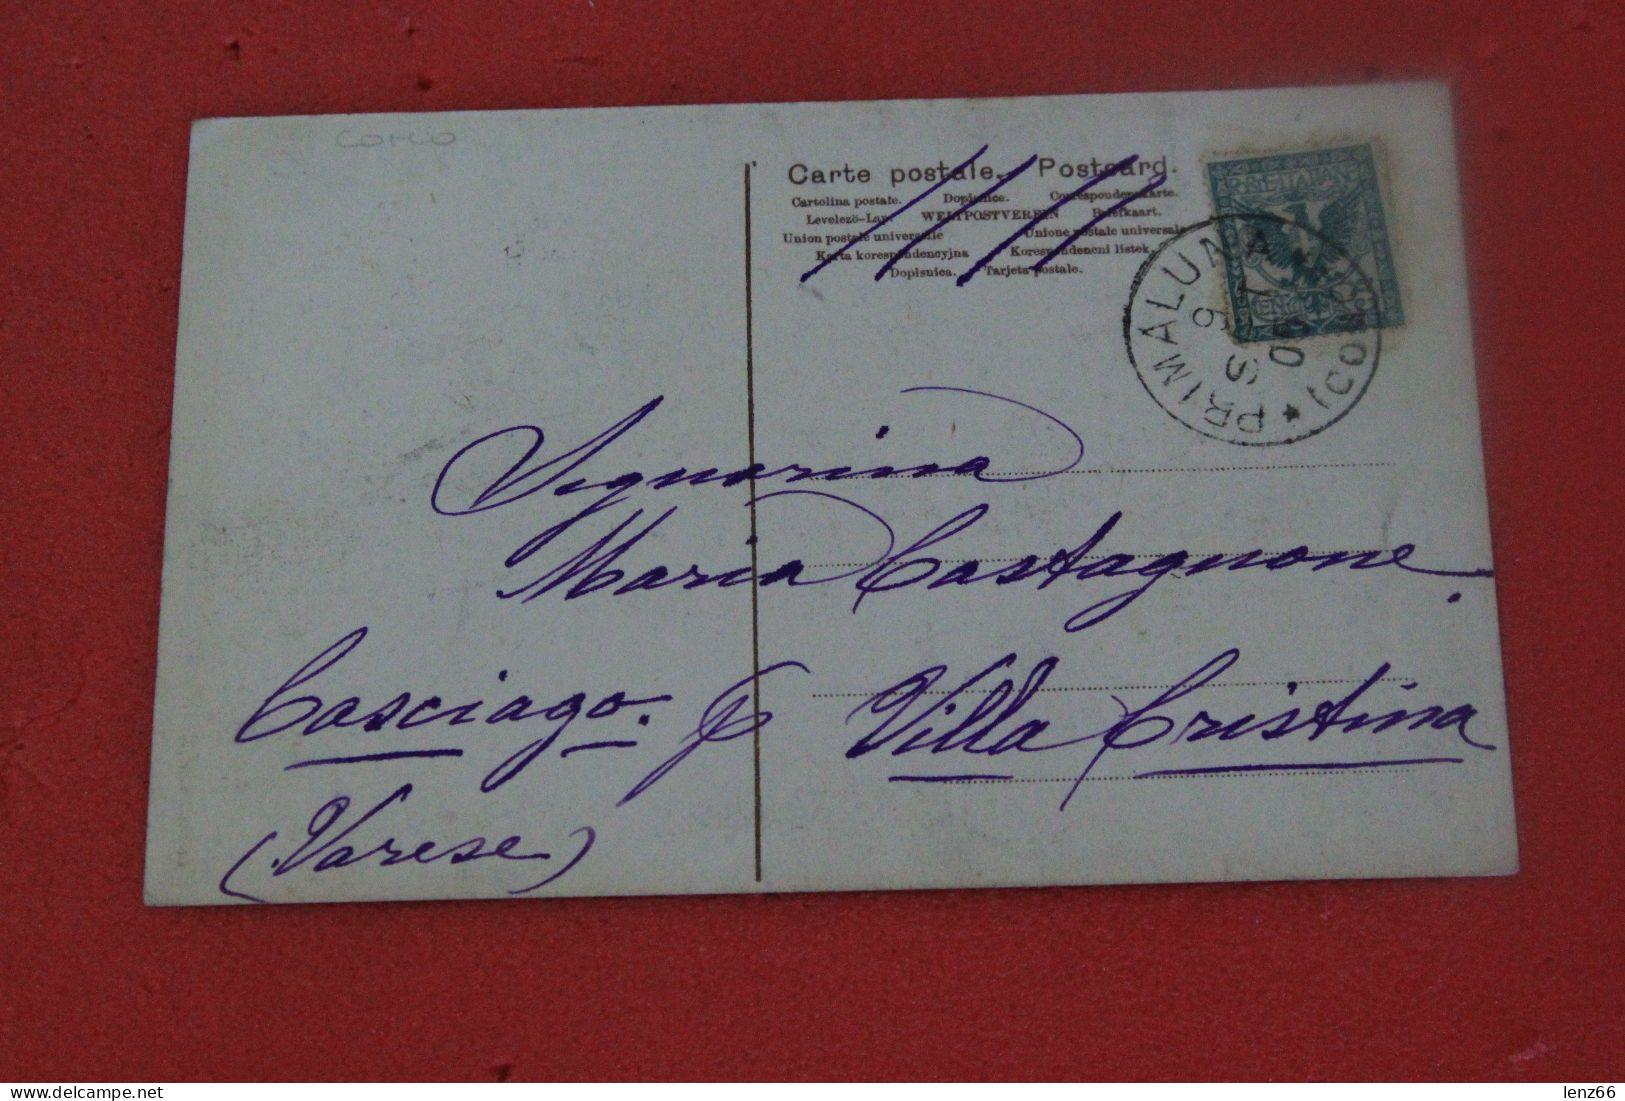 COMO
Carte postale. Postcard.
Cartolina postale. Dopisnice. Correspondenskarte.
Levelező-Lap. WELTPOSTVEREIN Briefkaart.
Union postale universale Unione postale universale
Karta korespondencyjna Korespondencni listek.
Dopisnica. Tarjeta postale.
PRIMALUNA (COMO)
Signorina
Maria Castagnone.
Villa Cristina
Casciago.
(Varese)
lenz66